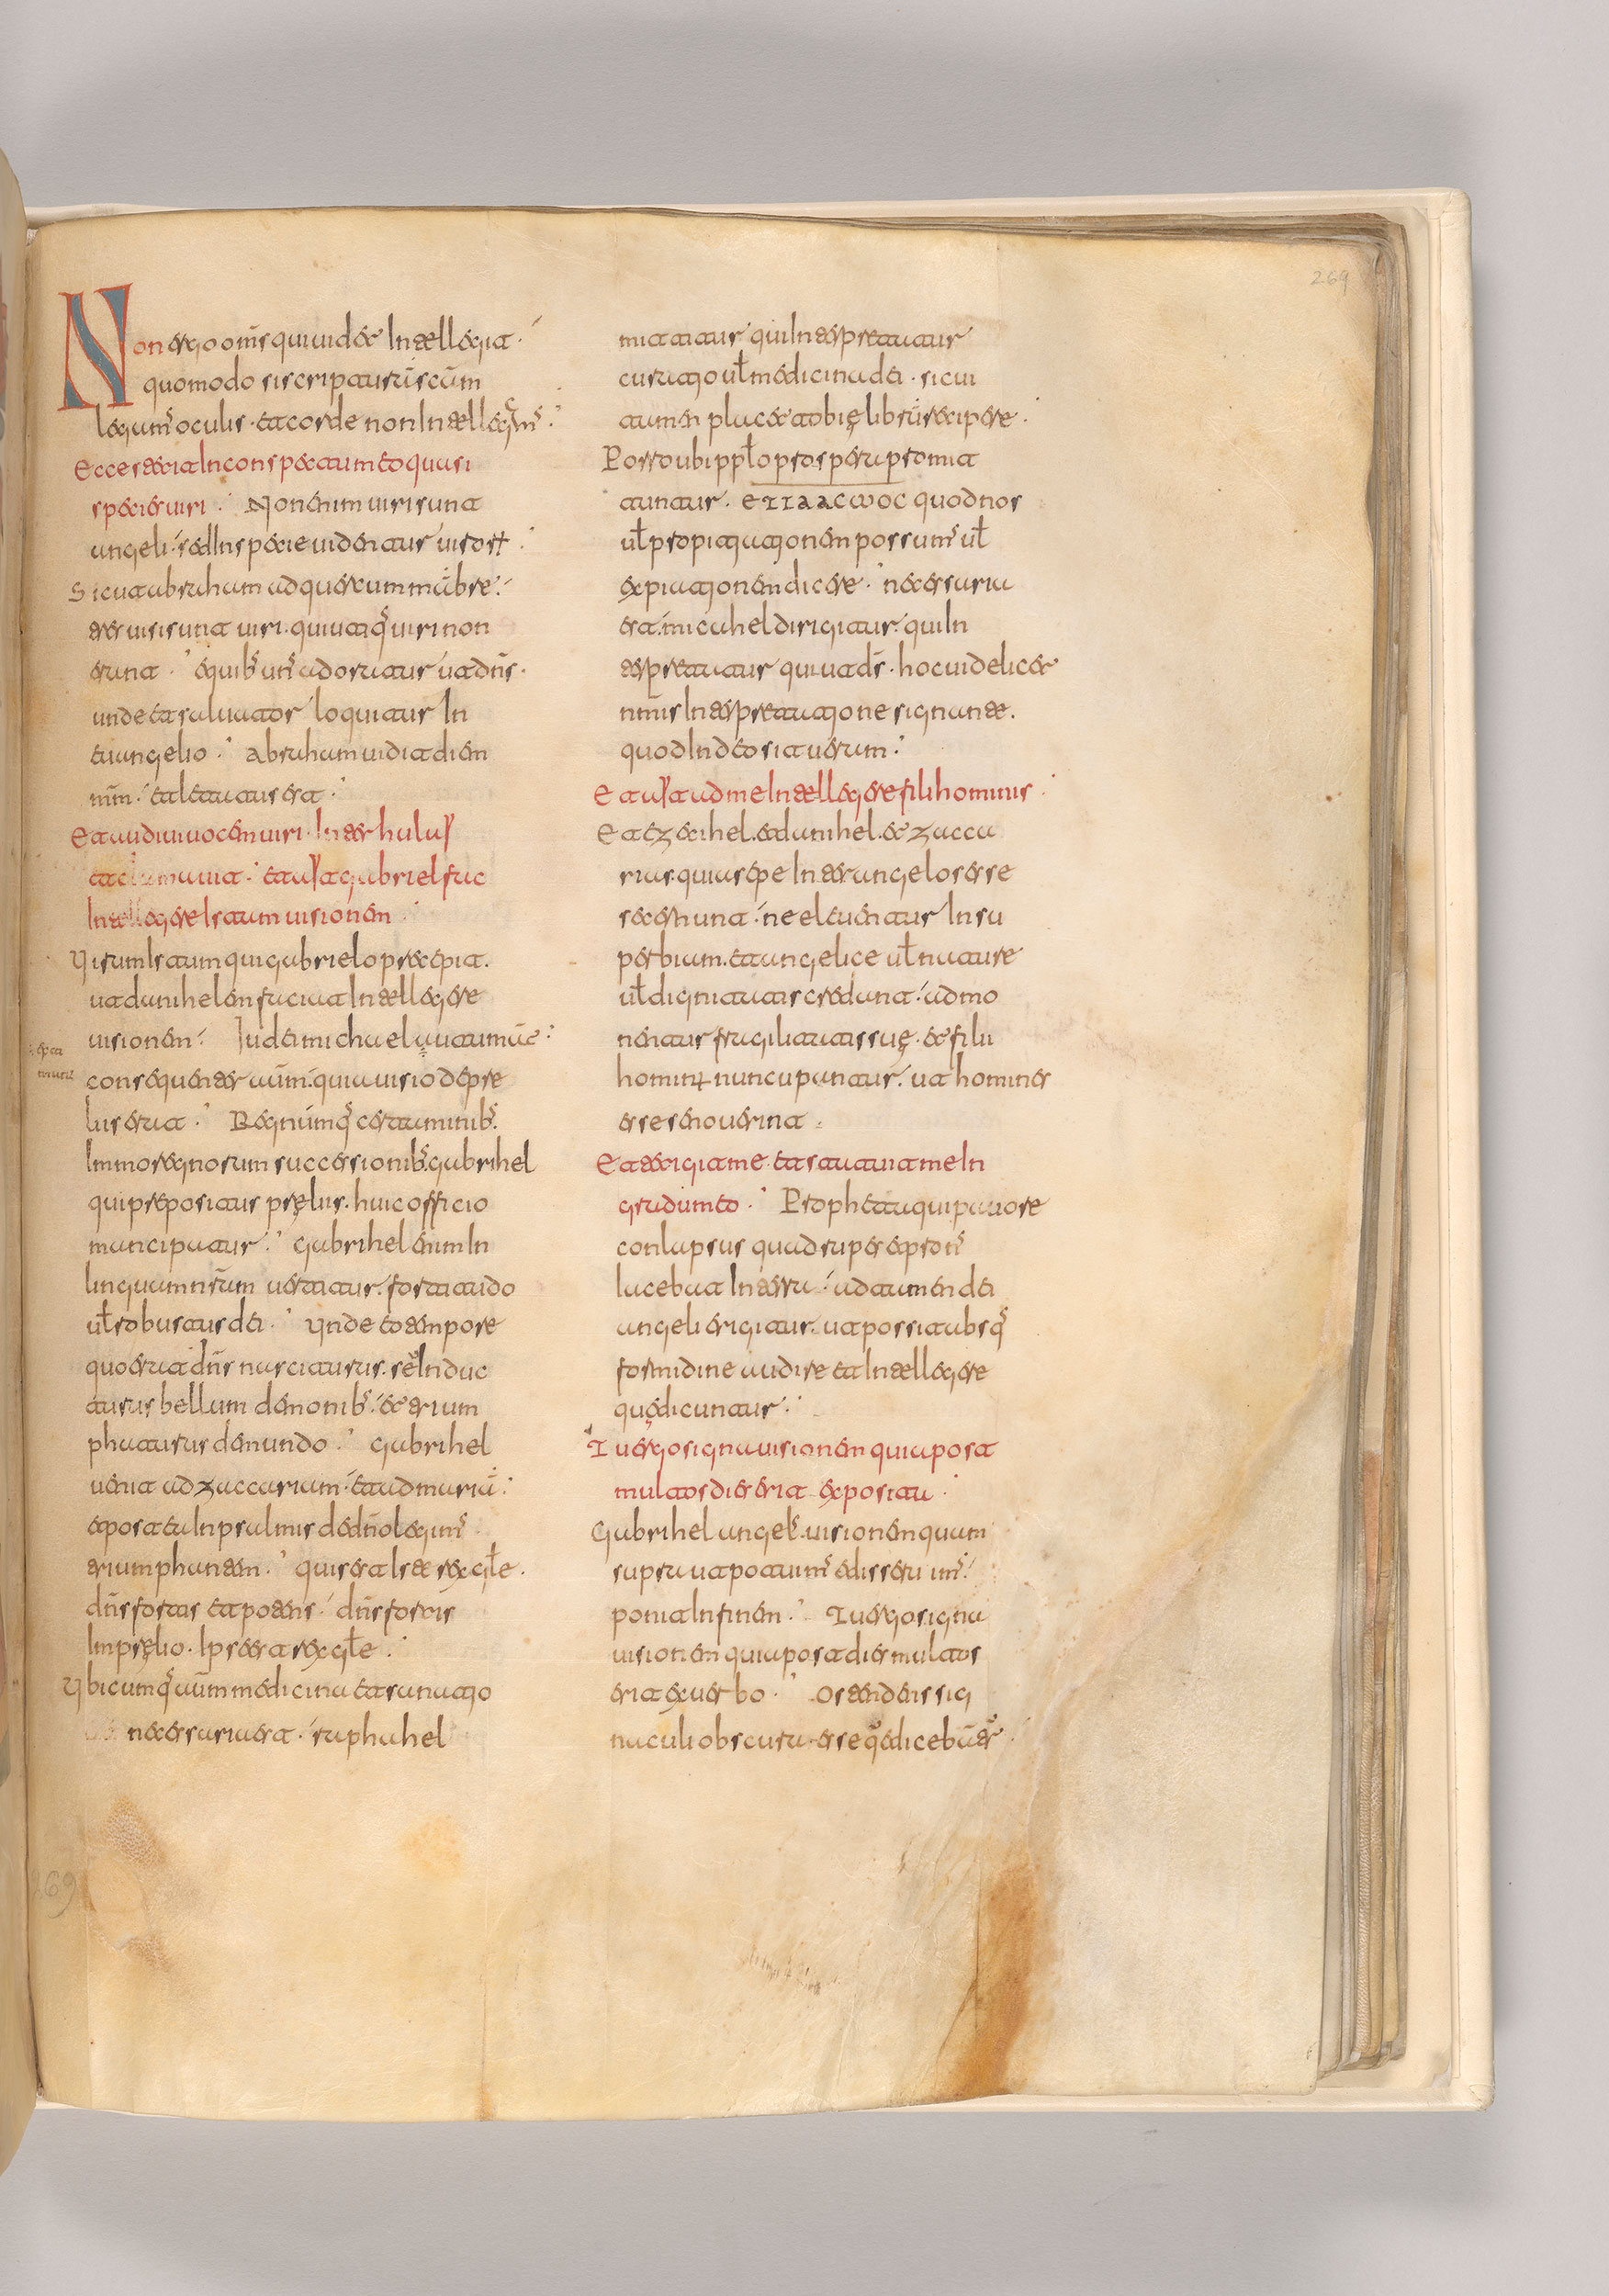 269
Non ergo om̄s qui uidet Intellegit.
quomodo si scripturā scām
legam' oculis. et corde non Intellegim'
Ecce stetit In conspectu meo quasi
species uiri. Non enim uiri sunt
angeli. sed In specie uidentur uirorꝝ
Sicut abraham ad quercum mābre.
tres uisi sunt uiri. qui utiq' uiri non
erant. e quib' un' adoratur ut dn̄s.
unde et saluator loquitur In
euangelio. Abraham uidit diem
mm̄. et letatus est.
Et audiui uocem uiri. Inter hulay
et clamauit. et ayt gabriel fac
Intellegere Istum uisionem
Uisum Istum qui gabrielo precepit.
ut danihelem faciat Intellegere
uisionem. Iudei michael autumāt
consequenter autm̄. quia uisio de pre
liis erat. Regnumq' certaminib'.
Immo regnorum successionib'. gabrihel
qui prepositus pręliis. huic officio
mancipatur. Gabrihel enim In
linguam nr̄am uertitur. fortitudo
ul̄ robustus dei. Unde eo tempore
quo erat dn̄s nasciturus. se Induc
turus bellum demonib'. et trium
phaturus de mundo. Gabrihel
uenit ad zaccariam. et ad mariā.
et post et In psalmis de dn̄o legim'
triumphantem. quis est Iste rex gl̄e.
dn̄s fortis et potens. dn̄s fortis
In pręlio. Ipse est rex gl̄e.
Ubicumq' autm̄ medicina et sanatio
necessaria est. raphahel
mittitur qui Interpretatur
curatio ul̄ medicina dei. sicui
tamen placet tobię librū recipere.
Porro ubi pp̄lo prospera promit
tuntur. quod nos
ul̄ propitiationem possum' ul̄
expiationem dicere. necessaria
est. micahel dirigitur. qui In
terpretatur qui ut ds̄. hoc uidelicet
nīnis Interpretatione signante.
quod In deo sit uerum.
Et ayt ad me Intellegere fili hominis.
Et ezecihel. et danihel. et zacca
rias. quia sepe Inter angelos esse
se cernunt. ne eleuentur In su
perbiam. et angelice ul̄ nature
ul̄ dignitatis credant. admo
nentur fragilitatis suę. et filii
hominꝝ nuncupantur. ut homines
esse se nouerint.
Et erigit me. et statuit me In
gradum eo. Propheta qui pauore
conlapsus quadrupes et pron'
iacebat In terra. ad tamen dei
angeli erigitur. ut possit absq'
formidine audire et Intellegere
quę dicuntur.
Tu ergo signa uisionem quia post
multos dies erit exposita.
Gabrihel angel'. uisionem quam
supra ut potuim' edisseruim'.
ponit In finem. Tu ergo signa
uisionem quia post dies multos
erit ex uerbo. Ostendens sig
naculi obscura esse quę dicebāt.
269